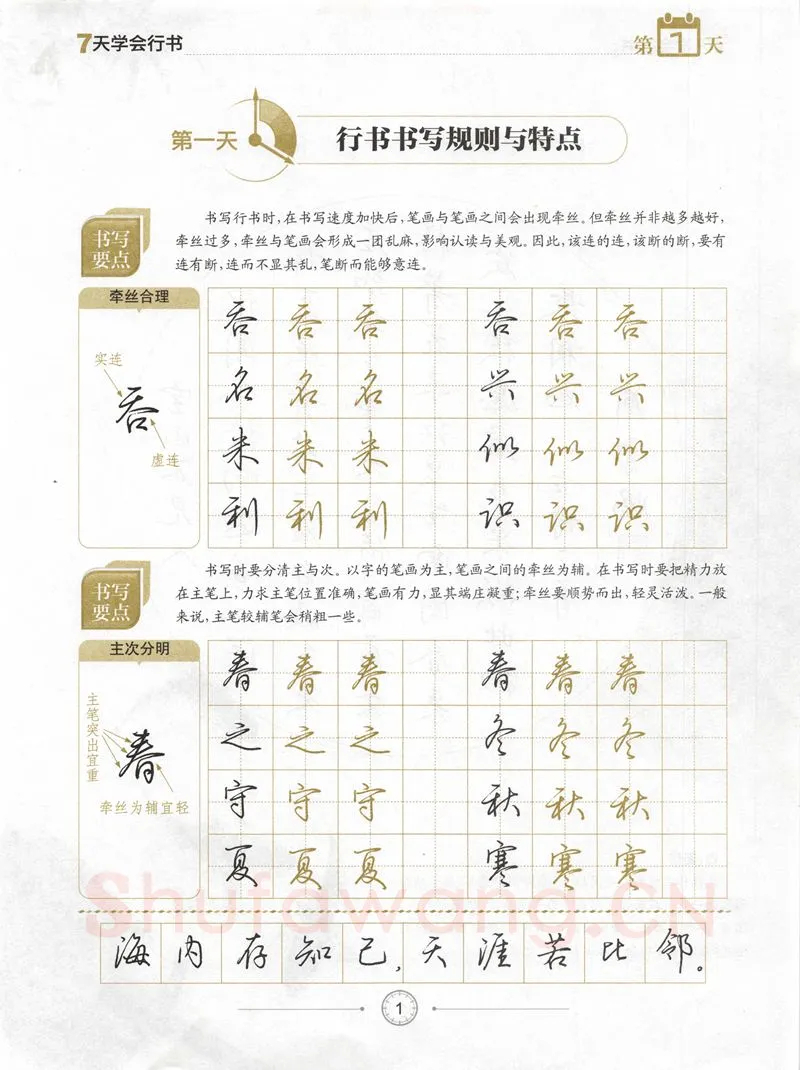 7天学会行书
第1天
第一天
行书书写规则与特点
书写要点
书写行书时，在书写速度加快后，笔画与笔画之间会出现牵丝。但牵丝并非越多越好，
牵丝过多，牵丝与笔画会形成一团乱麻，影响认读与美观。因此，该连的连，该断的断，要有
连有断，连而不显其乱，笔断而能够意连。
牵丝合理
实连
吞
虚连
吞 吞 吞 吞 吞 吞
名 名 名 兴 兴 兴
米 米 米 似 似 似
利 利 利 识 识 识
书写要点
书写时要分清主与次。以字的笔画为主，笔画之间的牵丝为辅。在书写时要把精力放
在主笔上，力求主笔位置准确，笔画有力，显其端庄凝重；牵丝要顺势而出，轻灵活泼。一般
来说，主笔较辅笔会稍粗一些。
主次分明
主笔突出宜重
春
牵丝为辅宜轻
春 春 春 春 春 春
之 之 之 冬 冬 冬
守 守 守 秋 秋 秋
夏 夏 夏 寒 寒 寒
Shufawang.CN
海内存知己，天涯若比邻。
1